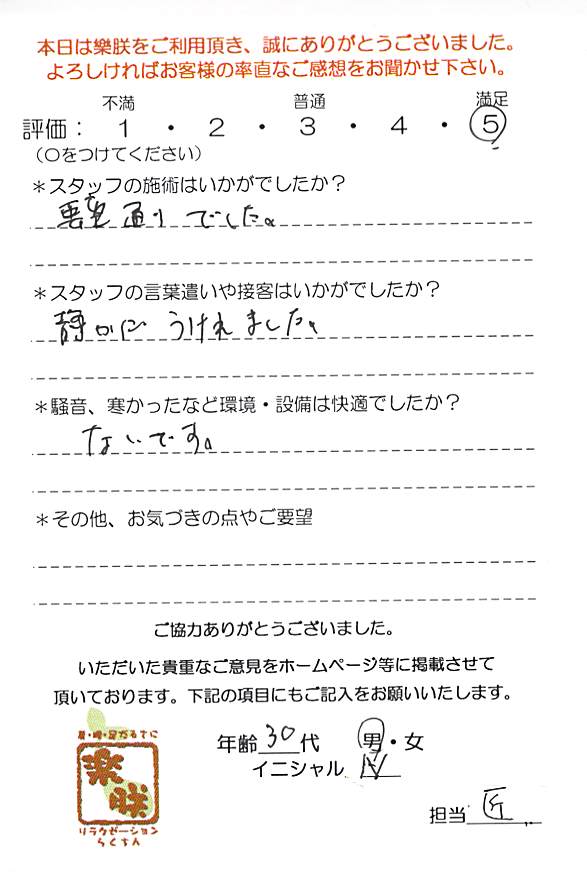 本日は樂朕をご利用頂き、誠にありがとうございました。
よろしければお客様の率直なご感想をお聞かせ下さい。
不満 普通 満足
評価： 1 ・ 2 ・ 3 ・ 4 ・ 5
（○をつけてください）
＊スタッフの施術はいかがでしたか？
要望通りでした。
＊スタッフの言葉遣いや接客はいかがでしたか？
静かにうけれました。
＊騒音、寒かったなど環境・設備は快適でしたか？
ないです。
＊その他、お気づきの点やご要望
ご協力ありがとうございました。
いただいた貴重なご意見をホームページ等に掲載させて
頂いております。下記の項目にもご記入をお願いいたします。
年齢 30 代 男・女
イニシャル
担当 匠
肩・腰・足からだに
楽朕
リラクゼーション
らくちん